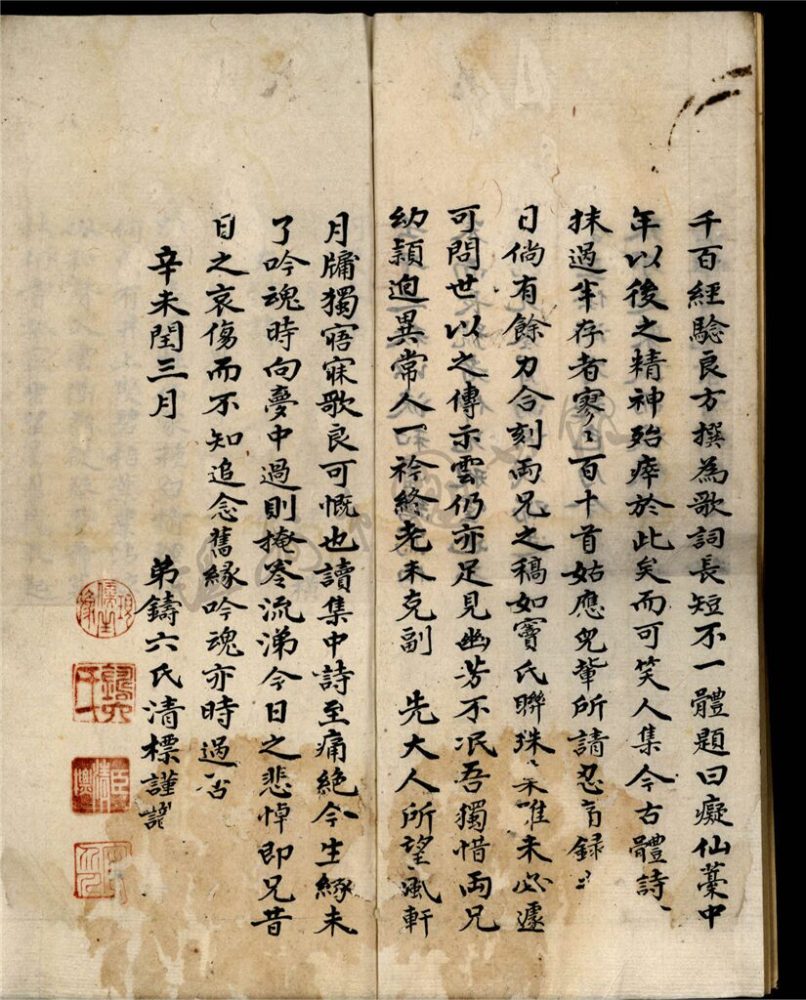 千百經驗良方撰為歌詞長短不一體題曰癡仙藁中
年以後之精神殆瘁於此矣而可笑人集今古體詩
抹過半存者寥〻百十首姑應兒輩所請忍肓録
日倘有餘力合刻両兄之稿如竇氏聯珠唯未必遽
可問世以之傳示雲仍亦足見幽芳不泯吾獨惜両兄
幼穎迥異常人一衿終老未克副 先大人所望風軒
月牖獨寤寐歌良可慨也讀集中詩至痛絶今生緣未
了吟魂時向夢中過則掩卷流涕今日之悲悼即兄昔
日之哀傷而不知追念舊緣吟魂亦時過否
辛未閏三月
弟鑄六氏清標謹